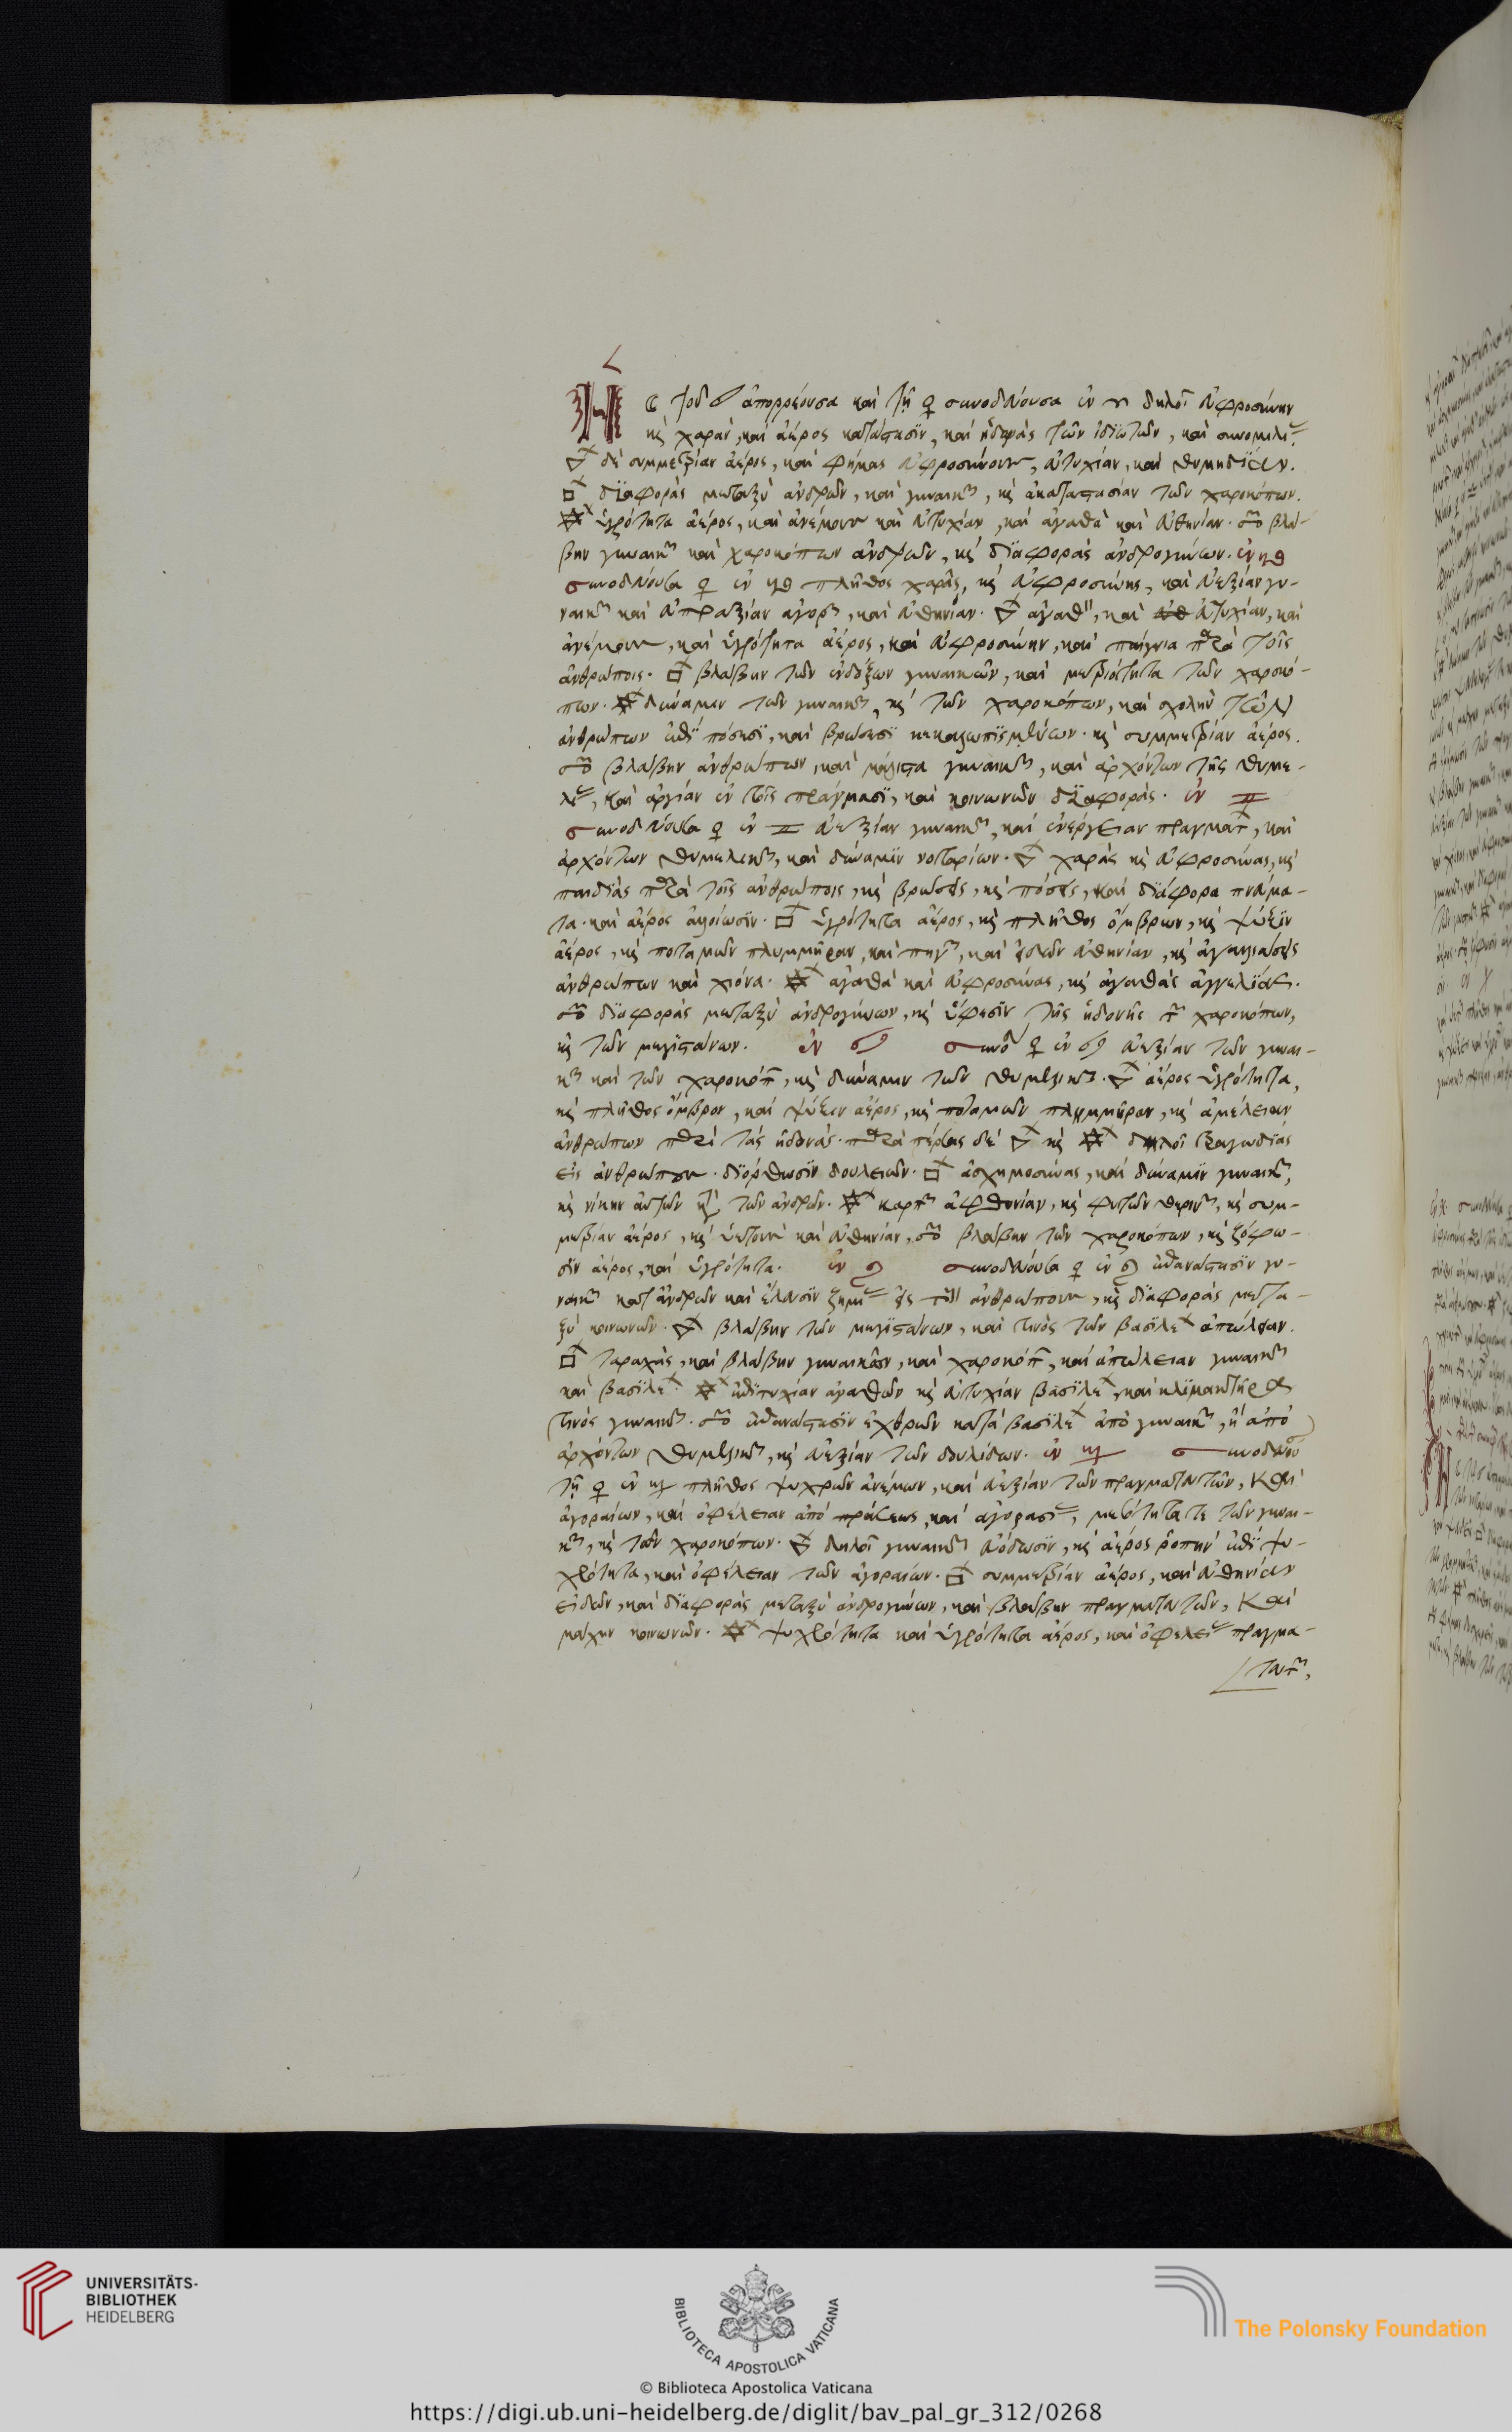 ☾ τοῦ ♂ ἀπορρέουσα καὶ τῇ ♀ συνοδεύουσα ἐν ♈ δηλοῖ εὐφροσύνην
καὶ χαρὰν, καὶ ἀέρος κατάστασϊν, καὶ ἡδονὰς τῶν ἰδϊωτῶν, καὶ
δὲ συμμετρίαν ἀέρος, καὶ φήμας εὐφροσύνους, εὐτυχίαν, καὶ θυμηδΐαν.
□ δϊαφορὰς μεταξὺ ἀνδρῶν, καὶ γυναικῶν, καὶ ἀκαταστασίαν τῶν χαροκόπων.
ὑγρότητα ἀέρος, καὶ ἀνέμους καὶ εὐτυχίαν, καὶ ἀγαθὰ καὶ εὐθηνίαν. ☍ βλά-
βην γυναικῶν καὶ χαροκόπων ἀνδρῶν, καὶ δϊαφορὰς ἀνδρογύνων. ἐν ♉
συνοδεύουσα ♀ ἐν ♉ πλῆθος χαρᾶς, καὶ εὐφροσύνης, καὶ εὐεξίαν γυ-
ναικῶν καὶ εὐπραξίαν ἀγορῶν, καὶ εὐθηνίαν. ἀγαθῶν, καὶ εὐτυχίαν, καὶ
ἀνέμους, καὶ ὑγρότητα ἀέρος, καὶ εὐφροσύνην, καὶ παίγνια παρὰ τοῖς
ἀνθρώποις. □ βλάβην τῶν ἐνδόξων γυναικῶν, καὶ μετριότητα τῶν χαροκό-
πων. δύναμιν τῶν γυναικῶν, καὶ τῶν χαροκόπων, καὶ σχολὴν τῶν
ἀνθρώπων ἐπὶ πόσεσϊ, καὶ βρώσεσϊ κεκαλωπϊσμένων. καὶ συμμετρίαν ἀέρος.
☍ βλάβην ἀνθρώπων, καὶ μάλιστα γυναικῶν, καὶ ἀρχόντων τῆς θυμέ-
λης, καὶ ἀργίαν ἐν τοῖς πράγμασϊ, καὶ κοινωνῶν δϊαφοράς. ἐν ♊
συνοδεύουσα ♀ ἐν ♊ εὐεξίαν γυναικῶν, καὶ ἐνέργειαν πραγμάτων, καὶ
ἀρχόντων θυμελικῶν, καὶ δύναμϊν νοταρίων. χαρὰς καὶ εὐφροσύνας, καὶ
παιδϊὰς παρὰ τοῖς ἀνθρώποις, καὶ βρώσεις, καὶ πόσεις, καὶ δϊάφορα πνεύμα-
τα. καὶ ἀέρος ἀλλοίωσϊν. □ ὑγρότητα ἀέρος, καὶ πλῆθος ὄμβρων, καὶ ψύξϊν
ἀέρος, καὶ ποταμῶν πλυμμῆραν, καὶ πηγῶν, καὶ εἰδῶν εὐθηνίαν, καὶ ἀγαλλιάσεις
ἀνθρώπων καὶ χιόνα. ἀγαθὰ καὶ εὐφροσύνας, καὶ ἀγαθὰς ἀγγελίας.
☍ δϊαφορὰς μεταξὺ ἀνδρογύνων, καὶ ὕφεσϊν τῆς ἡδονῆς τῶν χαροκόπων,
καὶ τῶν μεγϊστάνων. ἐν ♋ συνοδ ♀ ἐν ♋ εὐεξίαν τῶν γυναι-
κῶν καὶ τῶν χαροκόπων, καὶ δύναμιν τῶν θυμελικῶν. ἀέρος ὑγρότητα,
καὶ πλῆθος ὄμβρον, καὶ ψύξιν ἀέρος, καὶ ποταμῶν πλημμῦραν, καὶ ἀμέλειαν
ἀνθρώπων περὶ τὰς ἡδονάς. δὲ καὶ δηλοῖ τραγωδίας
εἰς ἀνθρώπους. δϊόρθωσϊν δουλειῶν. □ ἀσχημοσύνας, καὶ δύναμϊν γυναικῶν,
καὶ νίκην αὐτῶν κατὰ τῶν ἀνδρῶν. καρπῶν ἀφθονίαν, καὶ φυτῶν θερινῶν, καὶ συμ-
μετρίαν ἀέρος, καὶ ὑετοὺς καὶ εὐθηνίαν, ☍ βλάβην τῶν χαροκόπων, καὶ ζόφω-
σϊν ἀέρος, καὶ ὑγρότητα. ἐν ♌ συνοδεύουσα ♀ ἐν ♌ ἐπανάστασϊν γυ-
ναικῶν κατ' ἀνδρῶν καὶ ἔλευσϊν ζημίας εἰς τοὺς ἀνθρώπους, καὶ δϊαφορὰς μετα-
ξὺ κοινωνῶν. βλάβην τῶν μεγϊστάνων, καὶ τινὸς τῶν βασϊλέων ἀπώλειαν.
□ ταραχὰς, καὶ βλάβην γυναικῶν, καὶ χαροκόπων, καὶ ἀπώλειαν γυναικῶν
καὶ βασϊλέων. ἐπϊτυχίαν ἀγαθῶν καὶ εὐτυχίαν βασϊλέων, καὶ κλϊμακτῆρα
τινὸς γυναικῶν. ☍ ἐπανάστασϊν ἐχθρῶν κατὰ βασϊλέων ἀπὸ γυναικῶν, ἢ ἀπὸ
ἀρχόντων θυμελικῶν, καὶ εὐεξίαν τῶν δουλίδων. ἐν ♍ συνοδεύου
τῇ ♀ ἐν ♍ πλῆθος ψυχρῶν ἀνέμων, καὶ εὐεξίαν τῶν πραγματευτῶν, καὶ
ἀγοραίων, καὶ ὀφέλειαν ἀπὸ πράσεως, καὶ ἀγορασίας, μεσότητα τε τῶν γυναι-
κῶν, καὶ τῶν χαροκόπων. δηλοῖ γυναικῶν εὐόδωσϊν, καὶ ἀέρος ῥοπὴν ἐπὶ ψυ-
χρότητα, καὶ ὀφέλειαν τῶν ἀγοραίων. □ συμμετρίαν ἀέρος, καὶ εὐθηνίαν
εἰδῶν, καὶ δϊαφορὰς μεταξὺ ἀνδρογύνων, καὶ βλάβην πραγματευτῶν, καὶ
μάχην κοινωνῶν. ψυχρότητα καὶ ὑγρότητα ἀέρος, καὶ ὀφέλειαν πραγμα-
τευτῶν,
UNIVERSITÄTS-
BIBLIOTHEK
HEIDELBERG
BIBLIOTECA APOSTOLICA VATICANA
© Biblioteca Apostolica Vaticana
The Polonsky Foundation
https://digi.ub.uni-heidelberg.de/diglit/bav_pal_gr_312/0268